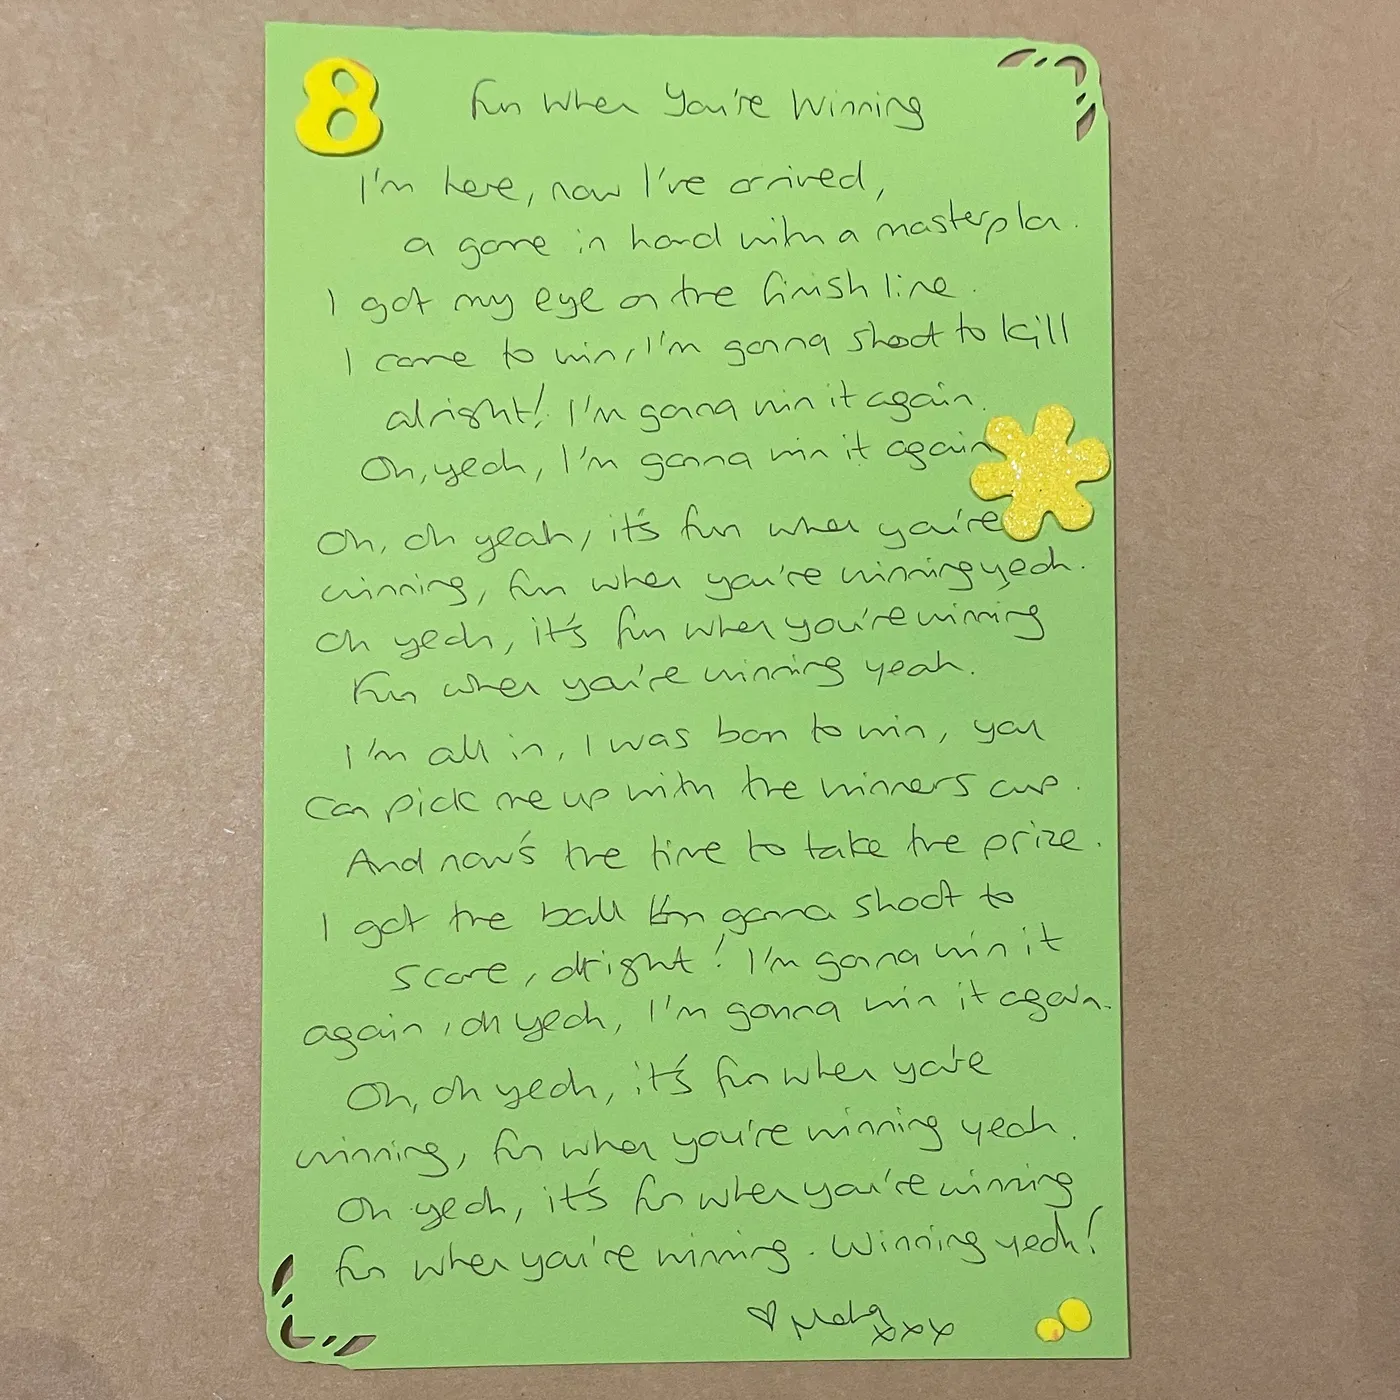 8
Fun When You're Winning
I'm here, now I've arrived,
a game in hand with a masterplan.
I got my eye on the finish line.
I came to win, I'm gonna shoot to kill
alright! I'm gonna win it again.
Oh, yeah, I'm gonna win it again
Oh, oh yeah, it's fun when you're
winning, fun when you're winning yeah.
Oh yeah, it's fun when you're winning
Fun when you're winning yeah.
I'm all in, I was born to win, you
can pick me up with the winners cup.
And now's the time to take the prize.
I got the ball I'm gonna shoot to
score, alright! I'm gonna win it
again, oh yeah, I'm gonna win it again.
Oh, oh yeah, it's fun when you're
winning, fun when you're winning yeah.
Oh yeah, it's fun when you're winning
fun when you're winning. Winning yeah!
xxx